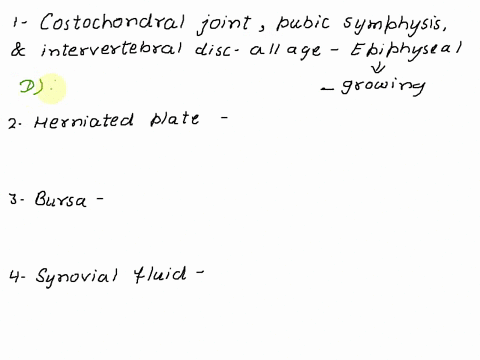 1- Costochondral joint, pubic symphysis,
& intervertebral disc- all age - Epiphyseal
↓
D) :
- growing
2- Herniated plate -
3- Bursa -
4- Synovial fluid -